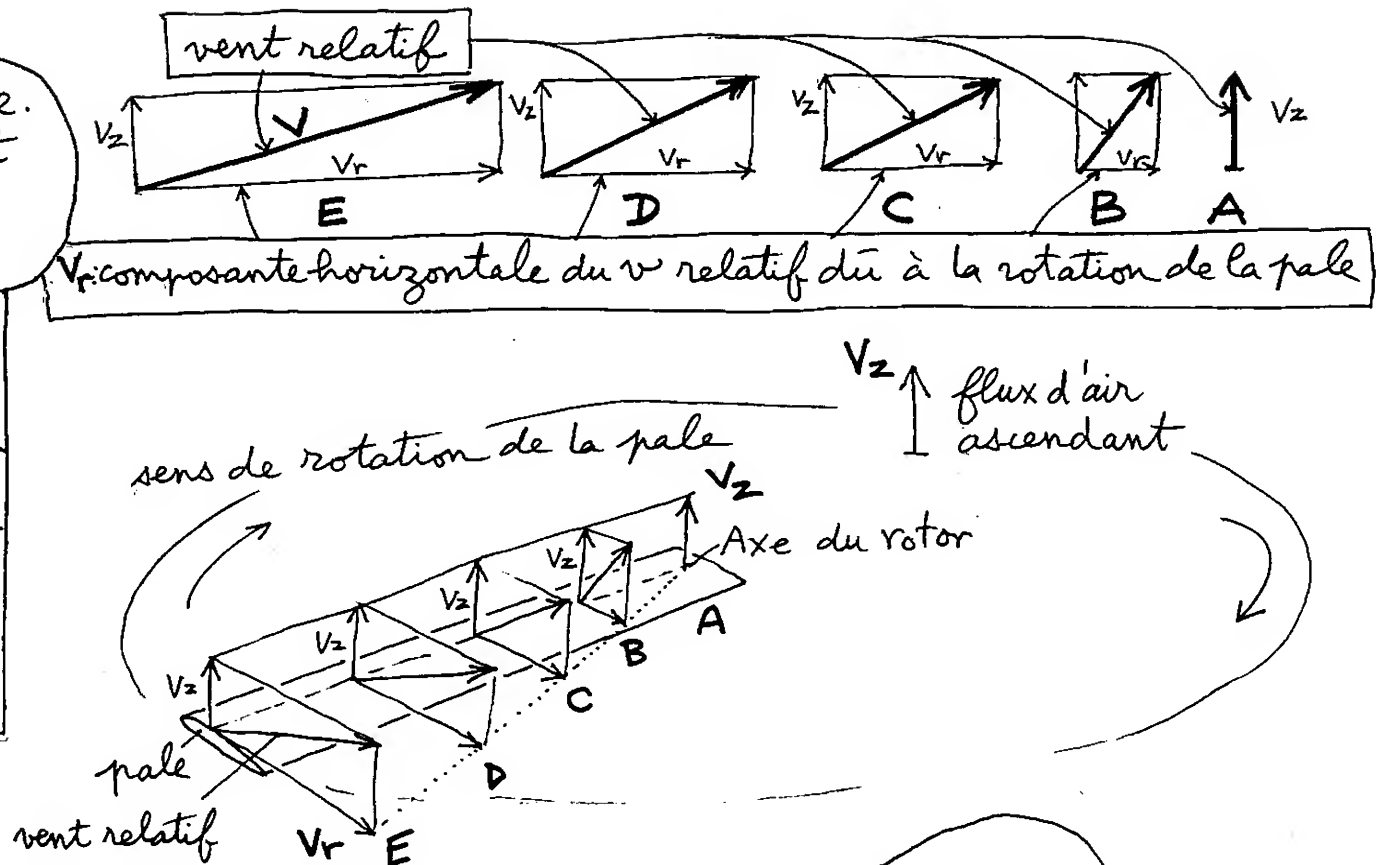 vent relatif
2.
Vz
V
Vr
E
Vz
Vr
D
Vz
Vr
C
Vr
B
A
Vz
Vr: composante horizontale du v relatif dû à la rotation de la pale
Vz
flux d'air
ascendant
sens de rotation de la pale
Vz
Axe du rotor
Vz
Vz
Vz
Vz
A
B
C
D
pale
vent relatif
Vr
E